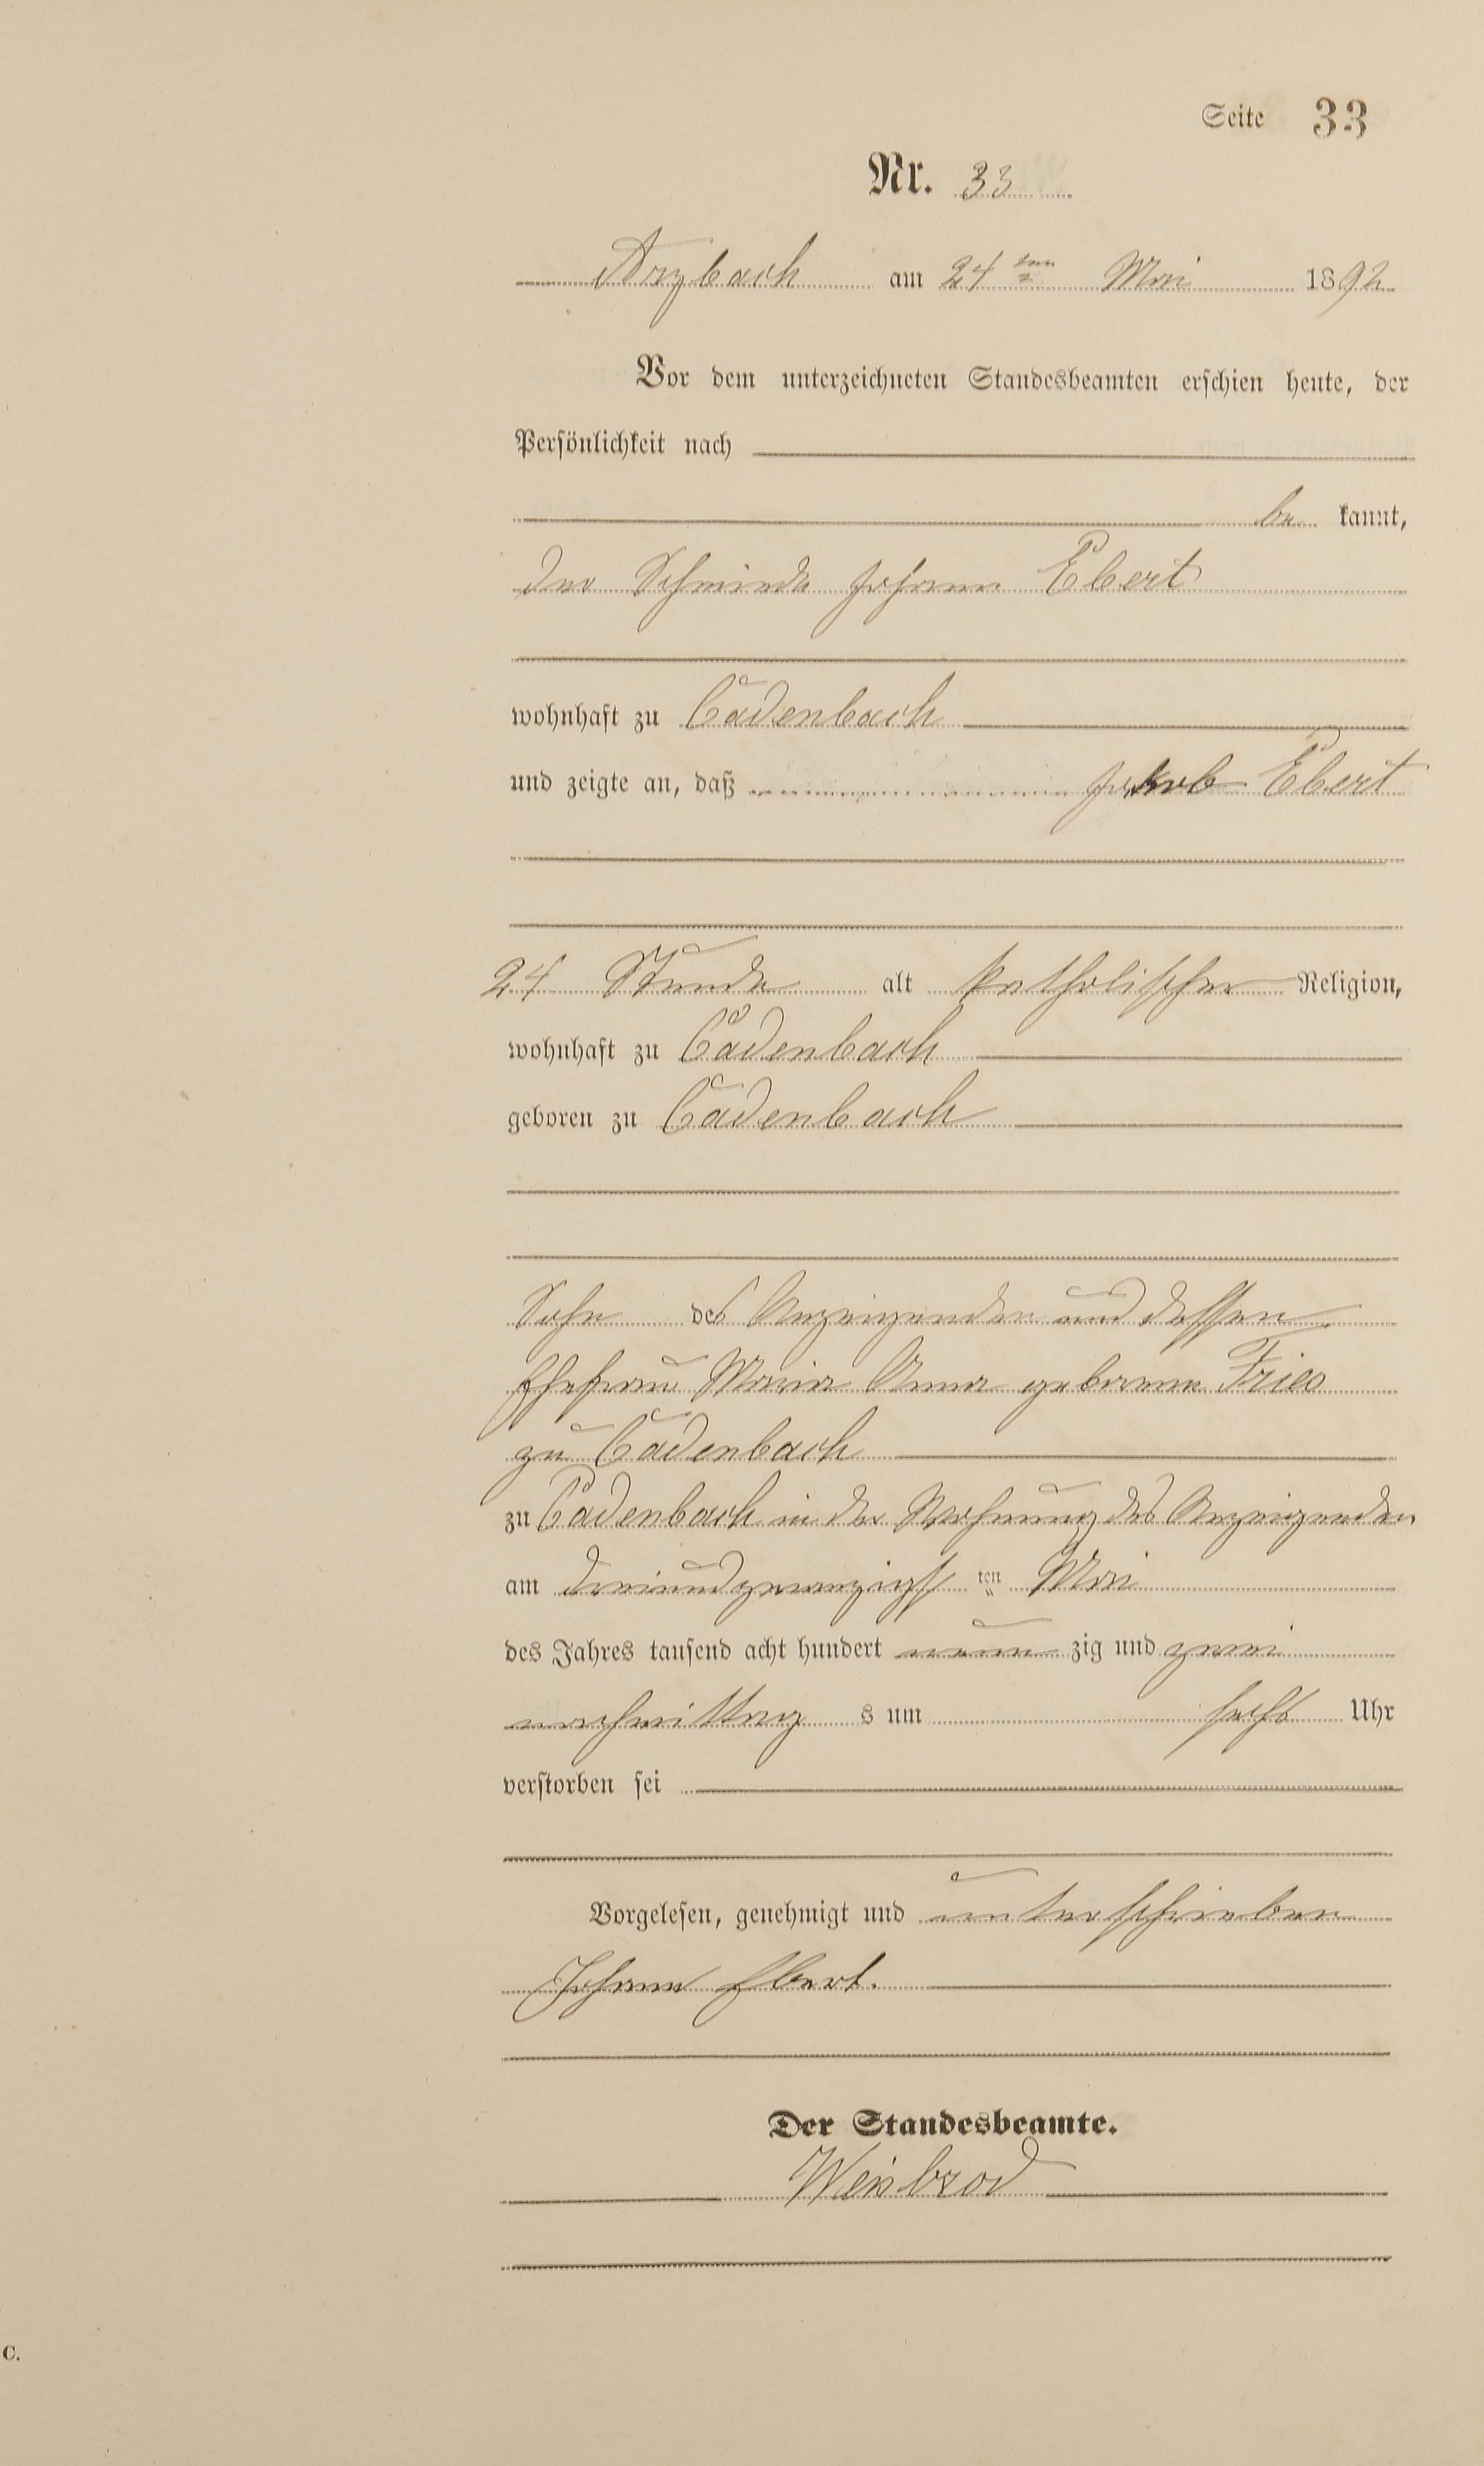 Seite 33
Nr. 33
Arzbach am 24ten Mai 1892
Vor dem unterzeichneten Standesbeamten erschien heute, der
Persönlichkeit nach
be kannt,
der Schmied Johann Ebert
wohnhaft zu Cadenbach
und zeigte an, daß Jakob Ebert
24 Stunde alt katholischer Religion,
wohnhaft zu Cadenbach
geboren zu Cadenbach
Sohn des Anzeigenden und dessen
Ehefrau Maria Anna geborene Fries
zu Cadenbach
zu Cadenbach in der Wohnung des Anzeigenden
am dreiundzwanzigst ten Mai
des Jahres tausend acht hundert neun zig und zwei
nachmittag s um sechs Uhr
verstorben sei
Vorgelesen, genehmigt und unterschrieben
Johann Ebert.
Der Standesbeamte.
Weinbrod
C.